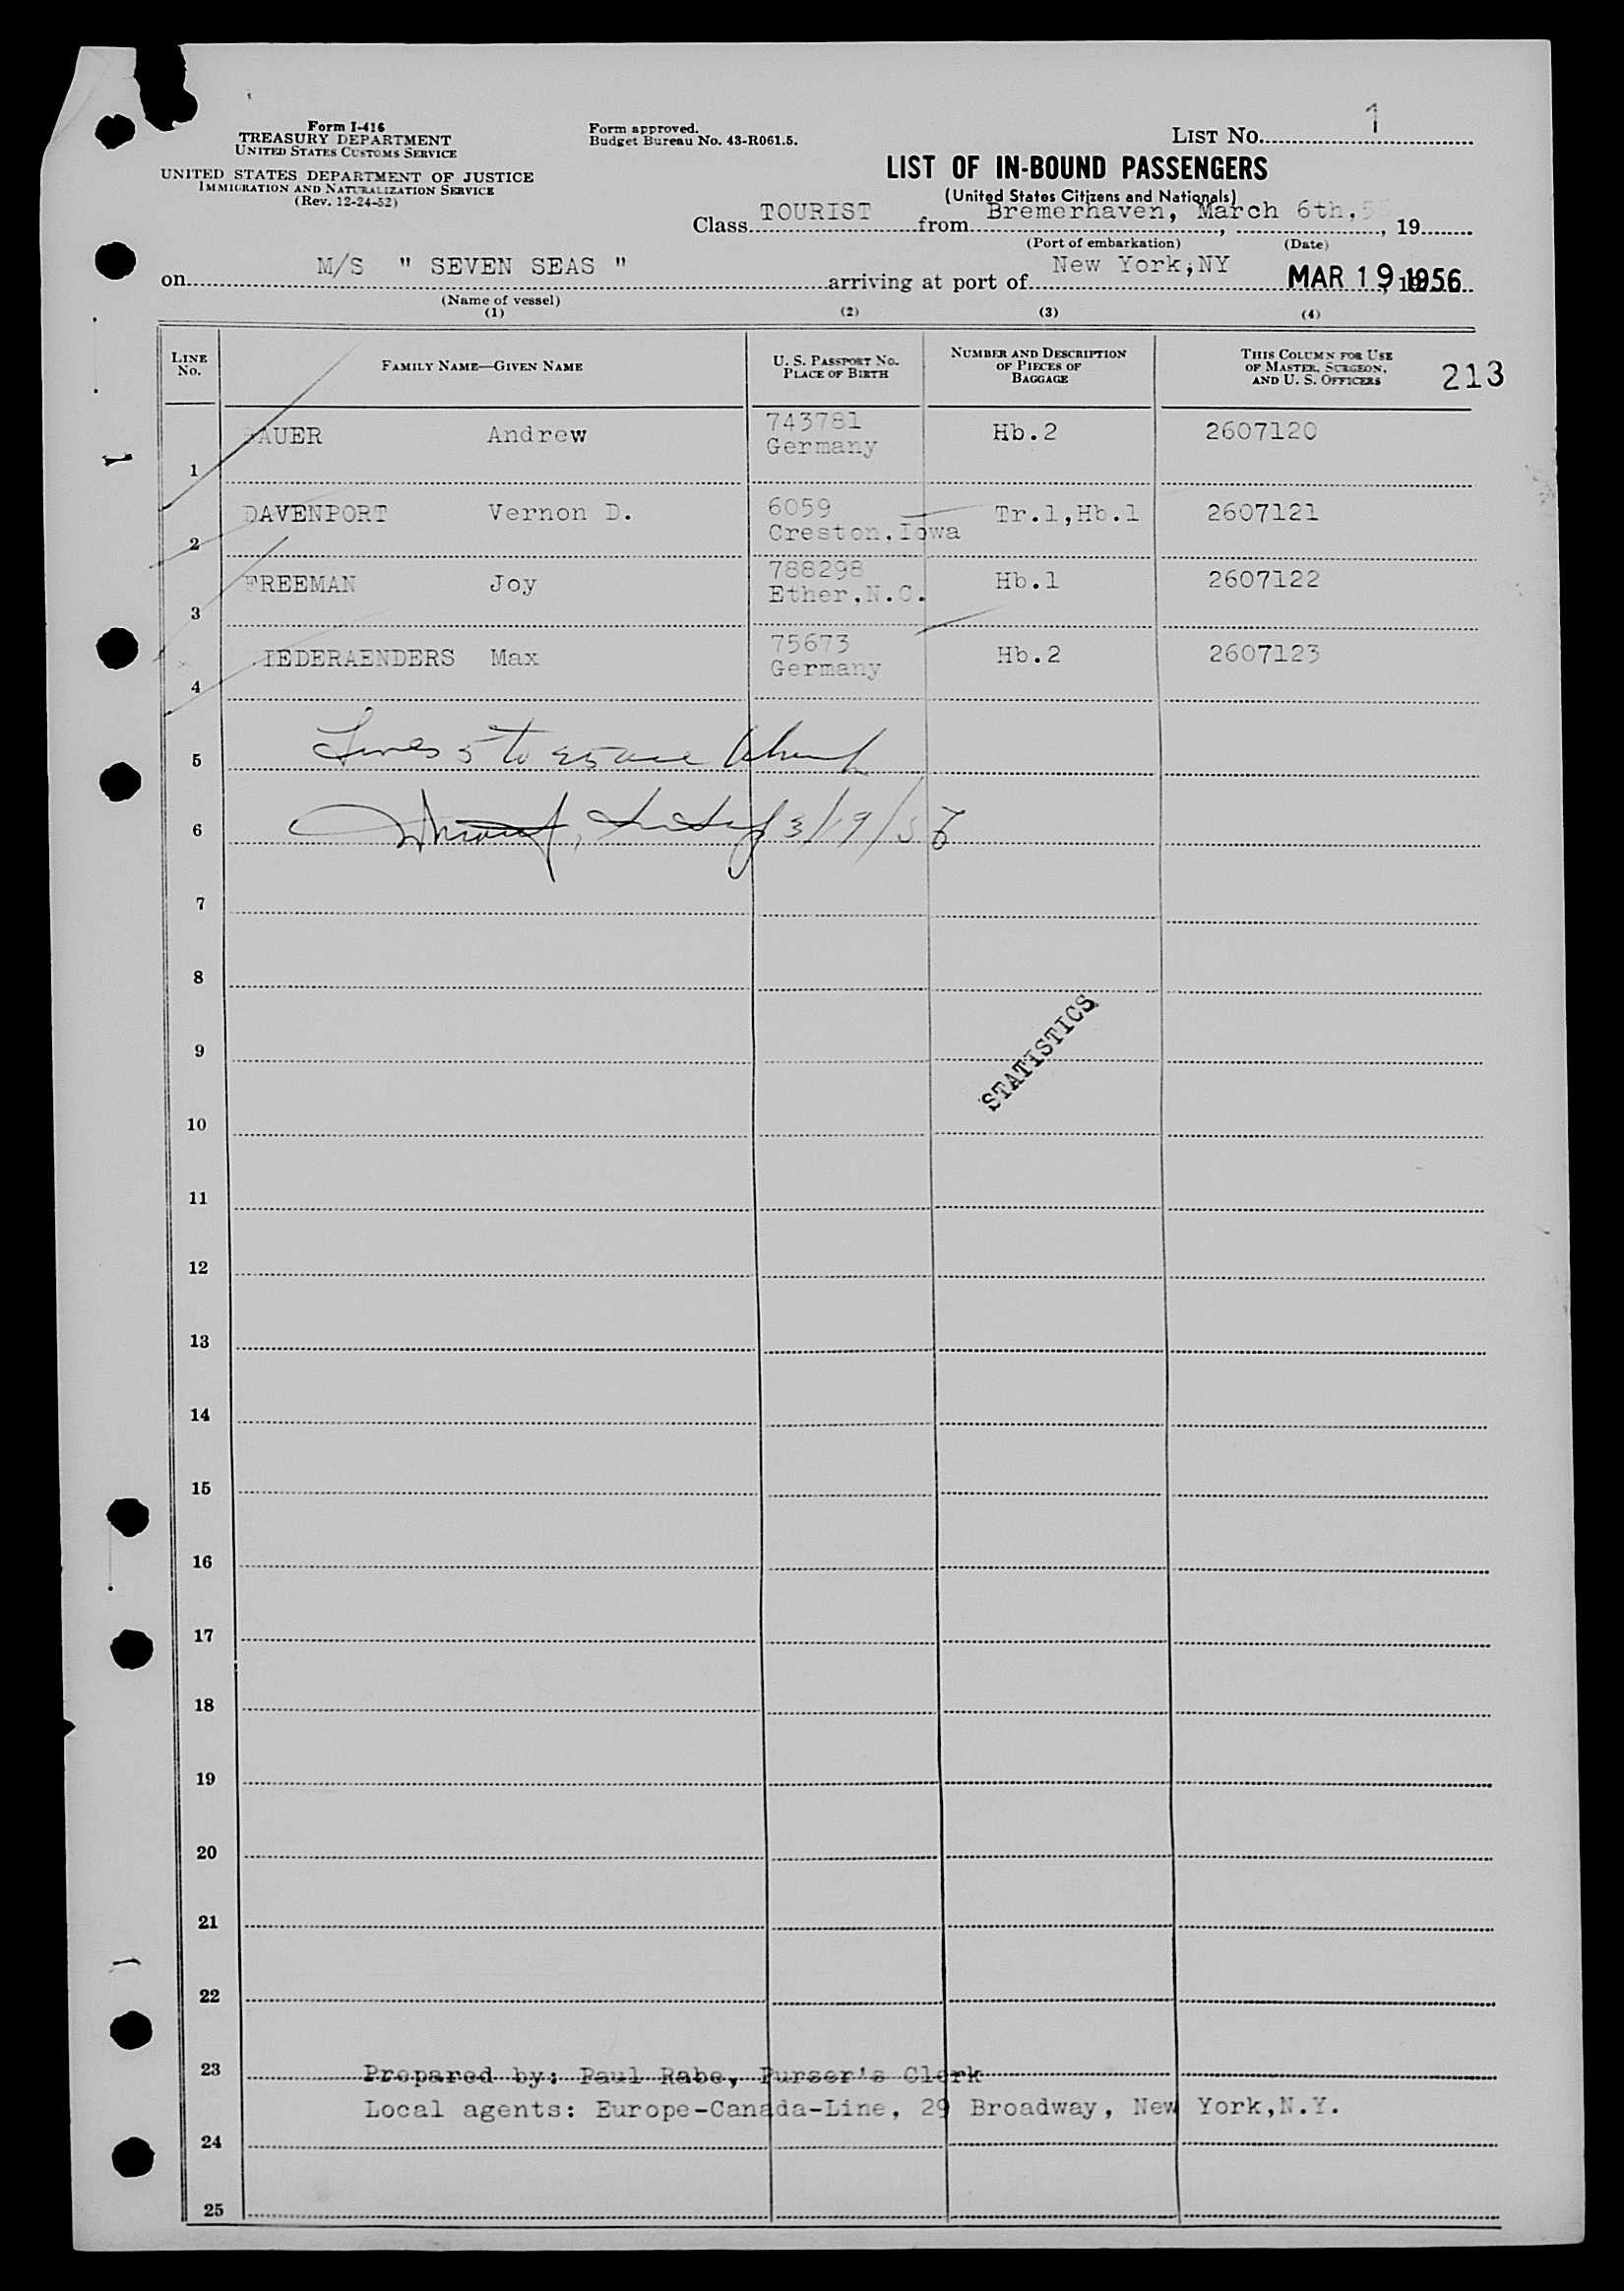 Form I-416
TREASURY DEPARTMENT
UNITED STATES CUSTOMS SERVICE
UNITED STATES DEPARTMENT OF JUSTICE
IMMIGRATION AND NATURALIZATION SERVICE
(Rev. 12-24-52)
Form approved.
Budget Bureau No. 43-R061.5.
LIST No. 1
LIST OF IN-BOUND PASSENGERS
(United States Citizens and Nationals)
Class TOURIST from Bremerhaven, March 6th, 19
(Port of embarkation) (Date)
on M/S " SEVEN SEAS " arriving at port of New York, NY MAR 19 1956
(Name of vessel)
(1) (2) (3) (4)
LINE No. FAMILY NAME—GIVEN NAME U. S. PASSPORT No. PLACE OF BIRTH NUMBER AND DESCRIPTION OF PIECES OF BAGGAGE THIS COLUMN FOR USE OF MASTER, SURGEON, AND U. S. OFFICERS 213
1 BAUER Andrew 743781 Germany Hb.2 2607120
2 DAVENPORT Vernon D. 6059 Creston, Iowa Tr.1,Hb.1 2607121
3 FREEMAN Joy 788298 Ether,N.C. Hb.1 2607122
4 Max 75673 Germany Hb.2 2607123
5 Lines 5 to 25 are blank
6 3/19/56
7
8
STATISTICS
9
10
11
12
13
14
15
16
17
18
19
20
21
22
23 Prepared by: Paul Rabe, Purser's Clerk
Local agents: Europe-Canada-Line, 29 Broadway, New York,N.Y.
24
25